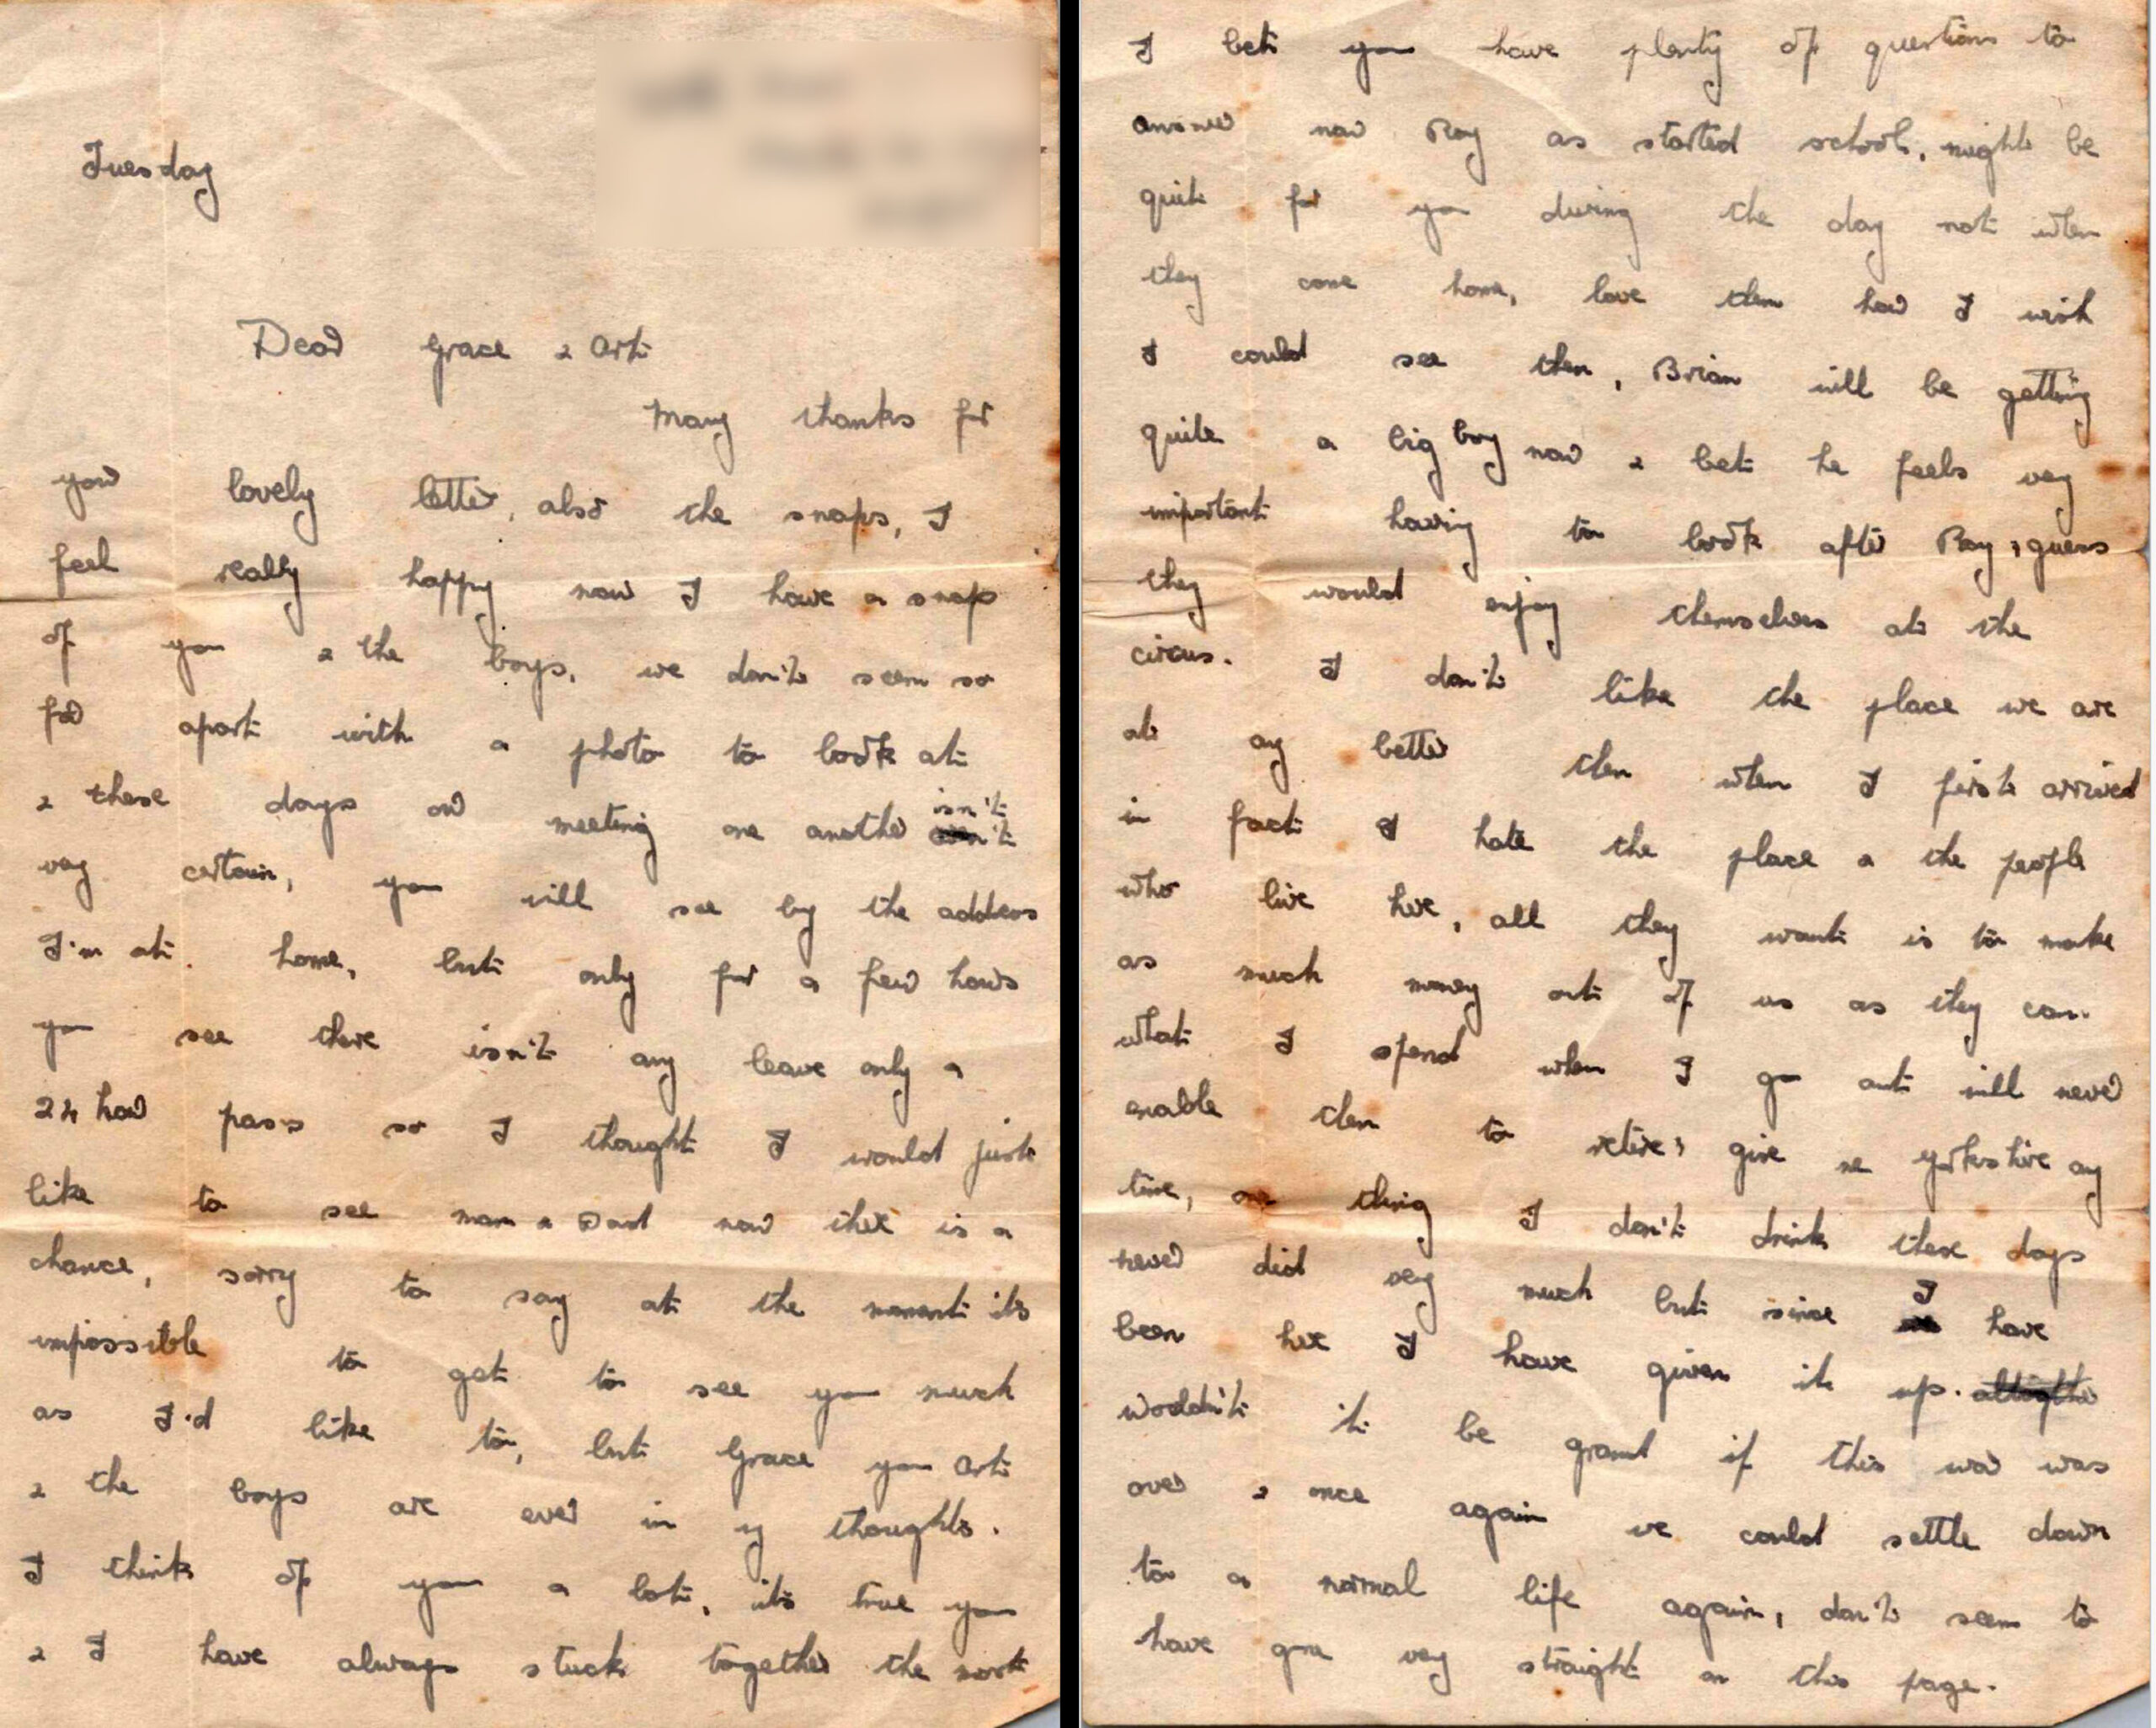 Tuesday
Dear Grace & Art
Many thanks for
your lovely letter, also the snaps, I
feel really happy now I have a snap
of you & the boys, we don't seem so
far apart with a photo to look at
& these days our meeting one another isn't
very certain, you will see by the address
I'm at home, but only for a few hours
you see there isn't any leave only a
24 hour pass so I thought I would just
like to see mam & Dad now there is a
chance, sorry to say at the moment its
impossible to get to see you much
as I'd like to, but Grace you Art
& the boys are ever in my thoughts.
I think of you a lot, its true you
& I have always stuck together the most
I bet you have plenty of questions to
answer now Roy as started school, might be
quite for you during the day not when
they come home, love them how I wish
I could see them, Brian will be getting
quite a big boy now & bet he feels very
important having to look after Roy, guess
they would enjoy themselves at the
circus. I don't like the place we are
at any better then when I first arrived
in fact I hate the place & the people
who live here, all they want is to make
as much money out of us as they can.
what I spend when I go out will never
enable them to retire, give me yorkshire any
time, one thing I don't drink these days
never did very much but since I have
been here I have given it up.
wouldn't it be grand if this war was
over & once again we could settle down
to a normal life again, don't seem to
have gone very straight on this page.